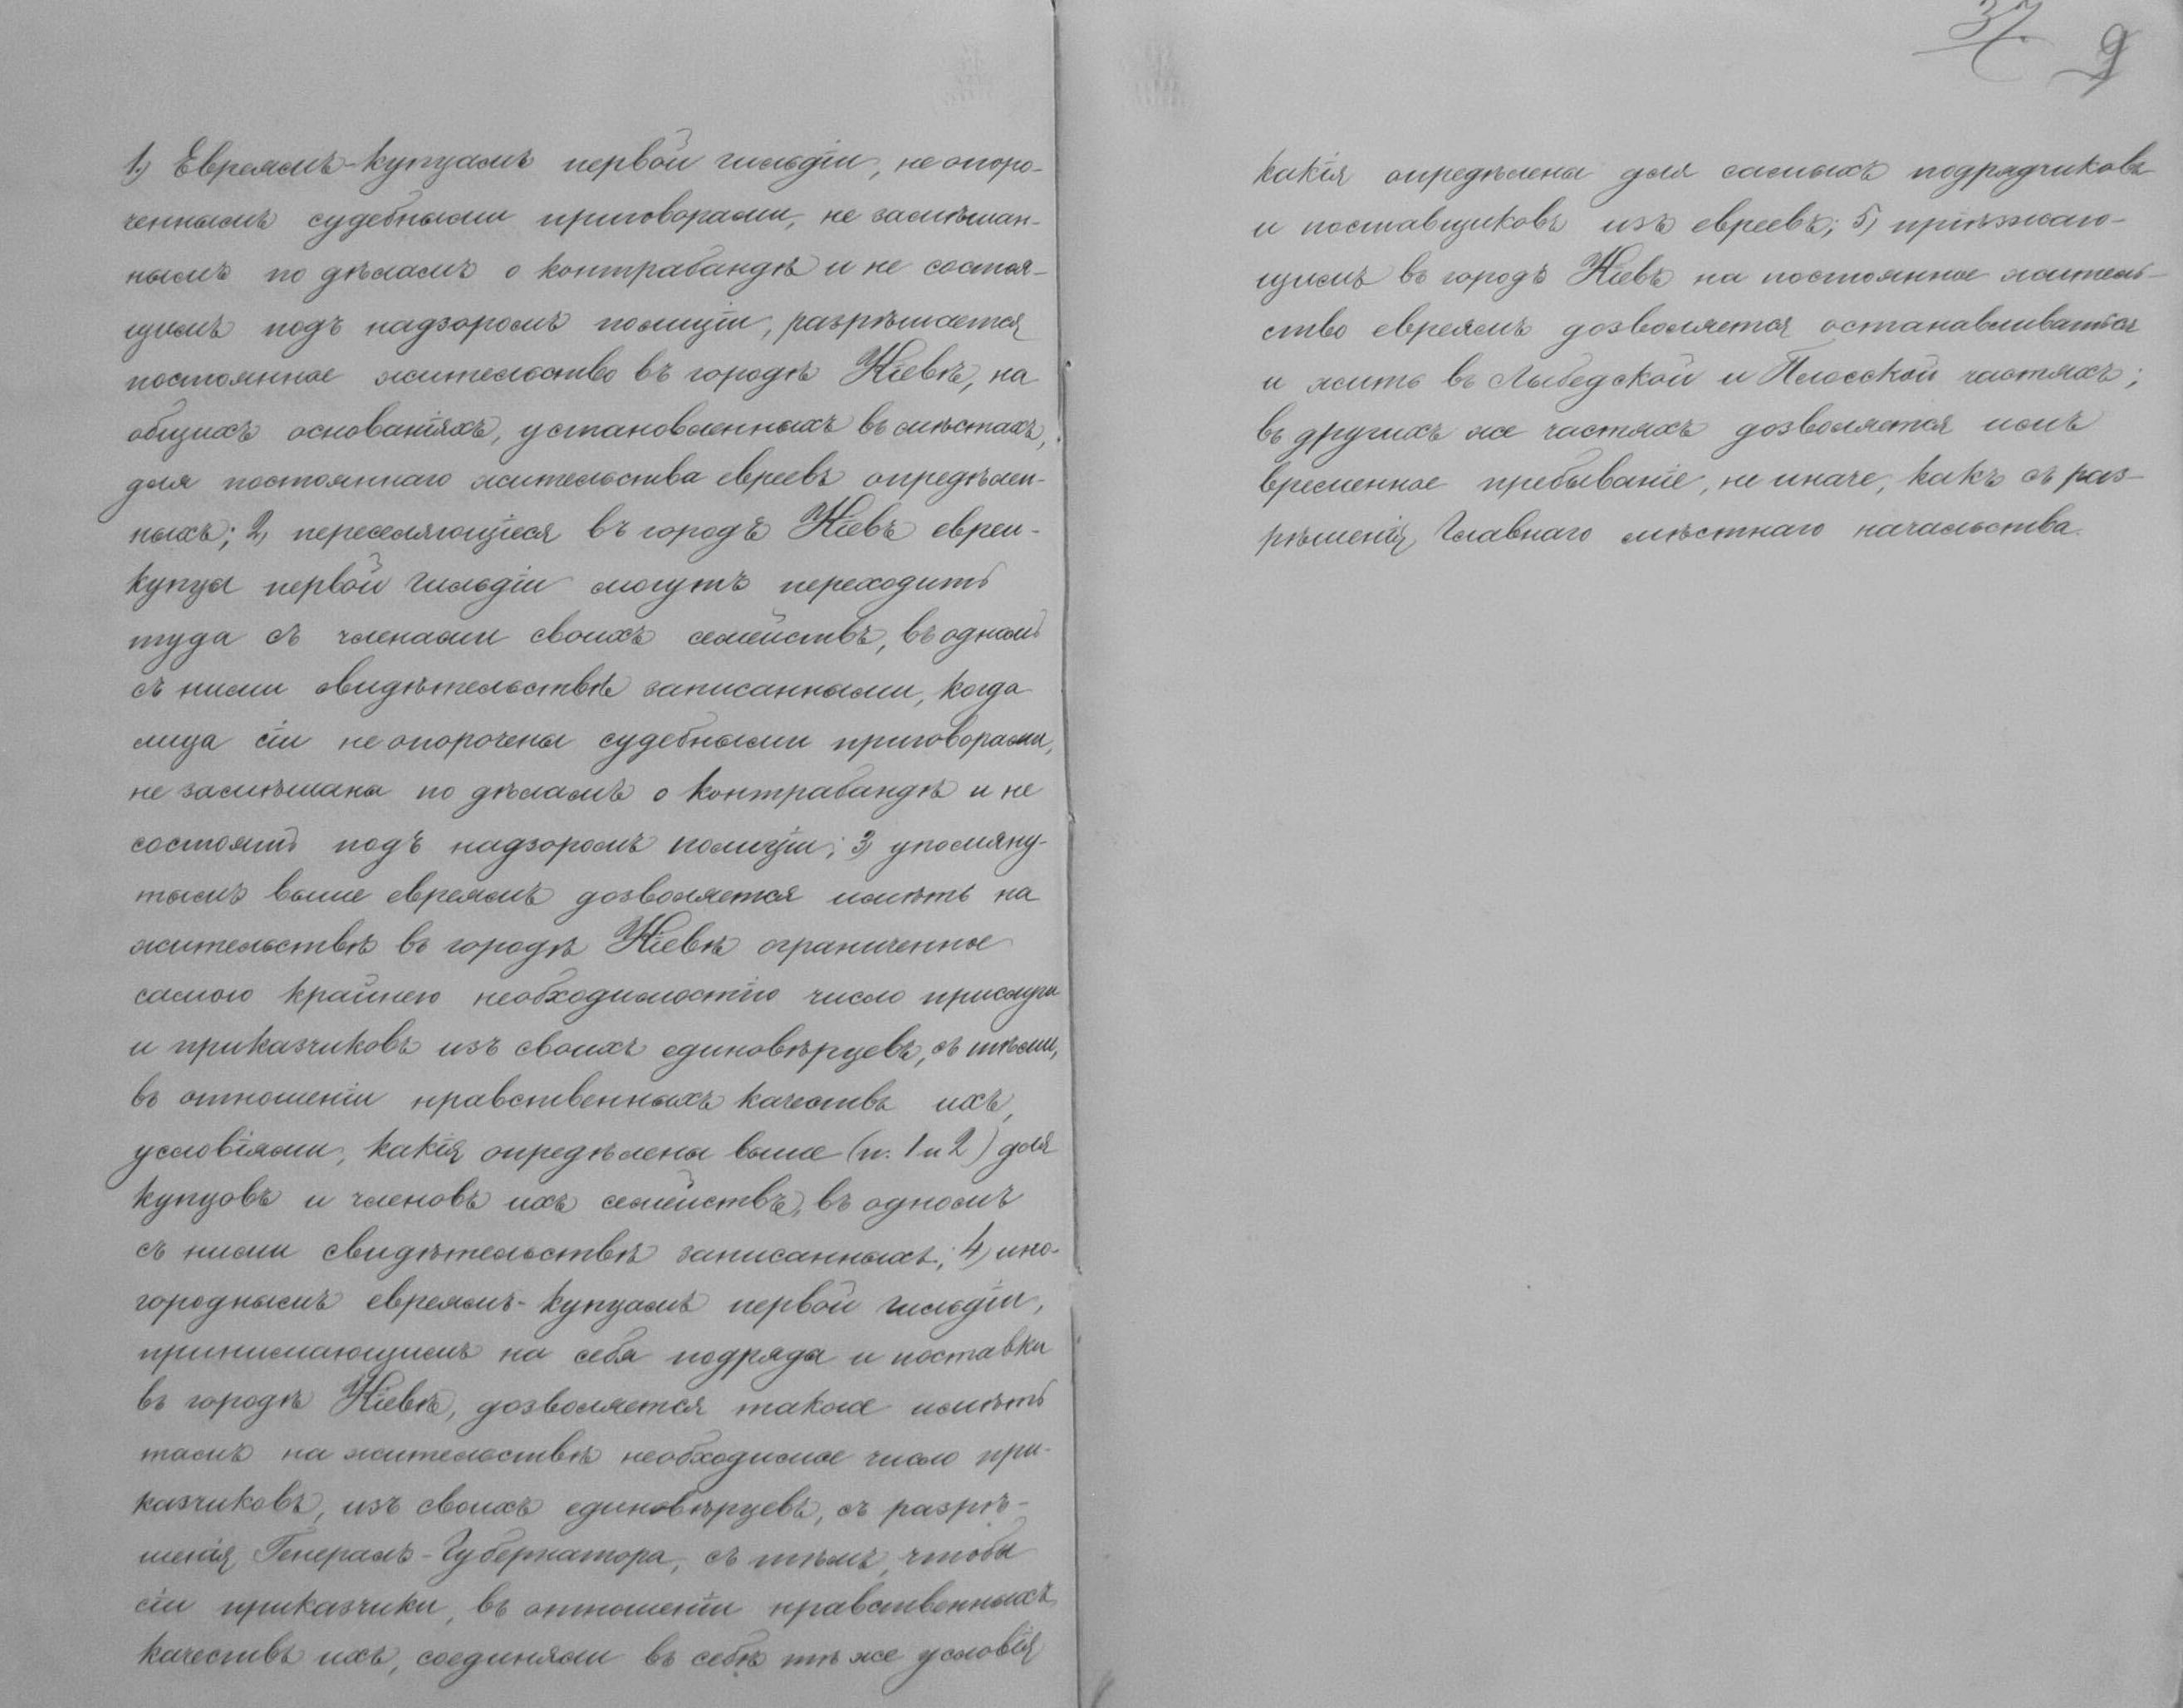 1) Евреямъ-купцамъ первой гильдіи, не опоро-
ченнымъ судебными приговорами, не замѣшан-
нымъ по дѣламъ о контрабандѣ и не состоя-
щимъ подъ надзоромъ полиціи, разрѣшается
постоянное жительство въ городѣ Кіевѣ, на
общихъ основаніяхъ, установленныхъ въ мѣстахъ,
для постояннаго жительства евреевъ опредѣлен-
ныхъ; 2) переселяющіеся въ городъ Кіевъ евреи-
купцы первой гильдіи могутъ переходить
туда съ членами своихъ семействъ, въ одномъ
съ ними свидѣтельствѣ записанными, когда
лица сіи не опорочены судебными приговорами,
не замѣшаны по дѣламъ о контрабандѣ и не
состоятъ подъ надзоромъ полиціи; 3) упомяну-
тымъ выше евреямъ дозволяется имѣть на
жительствѣ въ городѣ Кіевѣ ограниченное
самою крайнею необходимостію число прислуги
и приказчиковъ изъ своихъ единовѣрцевъ, съ тѣми,
въ отношеніи нравственныхъ качествъ ихъ,
условіями, какія опредѣлены выше (п. 1 и 2) для
купцовъ и членовъ ихъ семействъ, въ одномъ
съ ними свидѣтельствѣ записанныхъ; 4) ино-
городнымъ евреямъ-купцамъ первой гильдіи,
принимающимъ на себя подряды и поставки
въ городѣ Кіевѣ, дозволяется также имѣть
тамъ на жительствѣ необходимое число при-
казчиковъ, изъ своихъ единовѣрцевъ, съ разрѣ-
шенія Генералъ-Губернатора, съ тѣмъ, чтобы
сіи приказчики, въ отношеніи нравственныхъ
качествъ ихъ, соединяли въ себѣ тѣ же условія
37. 9
какія опредѣлены для самыхъ подрядчиковъ
и поставщиковъ изъ евреевъ; 5) пріѣзжаю-
щимъ въ городъ Кіевъ на постоянное житель-
ство евреямъ дозволяется останавливаться
и жить въ Лыбедской и Плосской частяхъ;
въ другихъ же частяхъ дозволяется имъ
временное пребываніе, не иначе, какъ съ раз-
рѣшенія Главнаго мѣстнаго начальства.